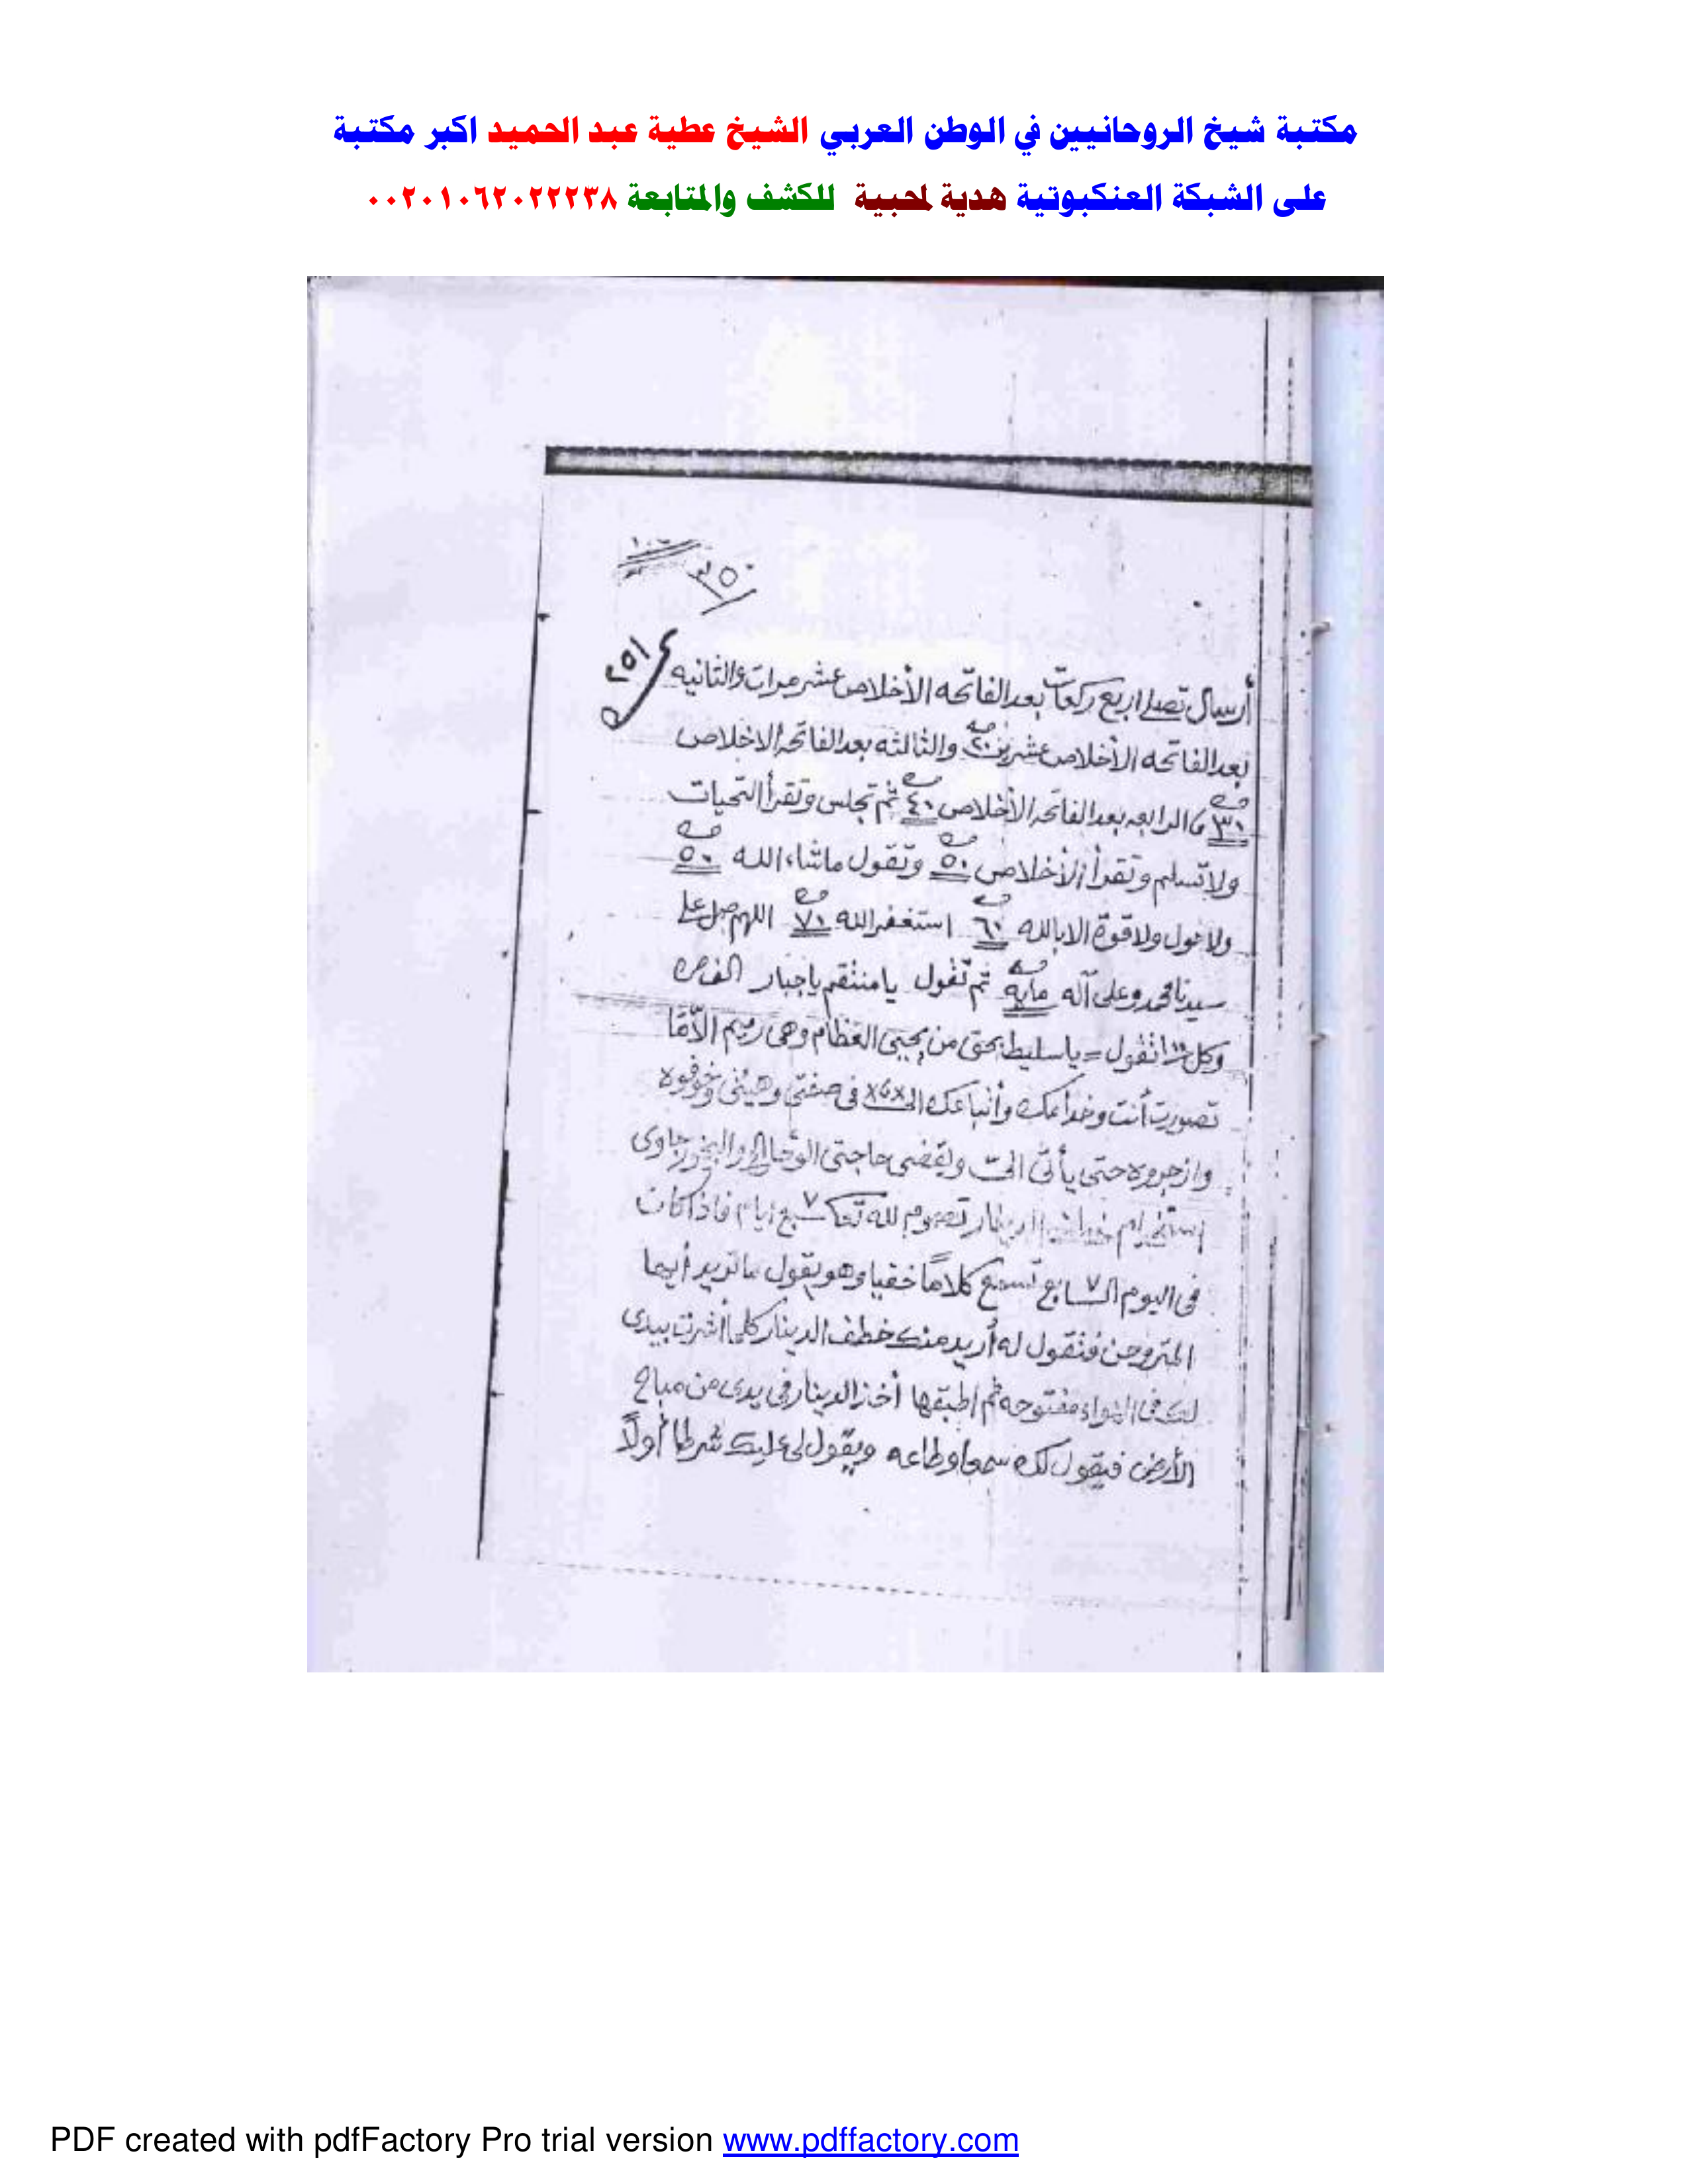 مكتبة شيخ الروحانيين في الوطن العربي الشيخ عطية عبد الحميد اكبر مكتبة
على الشبكة العنكبوتية هدية لمحبية للكشف والمتابعة ٠٠٢٠١٠٦٢٠٢٢٢٣٨
٣٥٠
أرسال تصلى اربع ركعات بعد الفاتحه الأخلاص عشر مرات والثانيه
بعد الفاتحه الأخلاص عشرين ٢٠ والثالثه بعد الفاتحه الاخلاص
٣٠ والرابعه بعد الفاتحه الأخلاص ٤٠ ثم تجلس وتقرأ التحيات
ولا تسلم وتقرأ الأخلاص ٥٠ وتقول ماشاء الله ٥٠
ولا حول ولا قوة الا بالله ٦٠ استغفر الله ٧٠ اللهم صل على
سيدنا محمد وعلى آله مايه ثم تقول يا منتقم يا جبار الف مره
وكل تقول = يا سليط بحق من يحيى العظام وهى رميم الا ما
تصورت أنت وخدامك وأتباعك الى فى صفتى وهيئتى وخوفوه
وازجروه حتى يأتى الىّ ويقضى حاجتى الوحا الخ والبخور جاوى
استخدام الدينار تصوم لله تعا ٧ سبع ايام فاذا كانت
فى اليوم ال٧ـسابع تسمع كلاماً خفيا وهو يقول ما تريد أيها
المتروحن فتقول له أريد منك خطف الدينار كلما أشرت بيدى
لك فى الهواء مفتوحه ثم اطبقها أخذ الدينار فى يدى من مباح
الأرض فيقول لك سمعا وطاعه ويقول لى عليك شرطا أولاً
PDF created with pdfFactory Pro trial version www.pdffactory.com